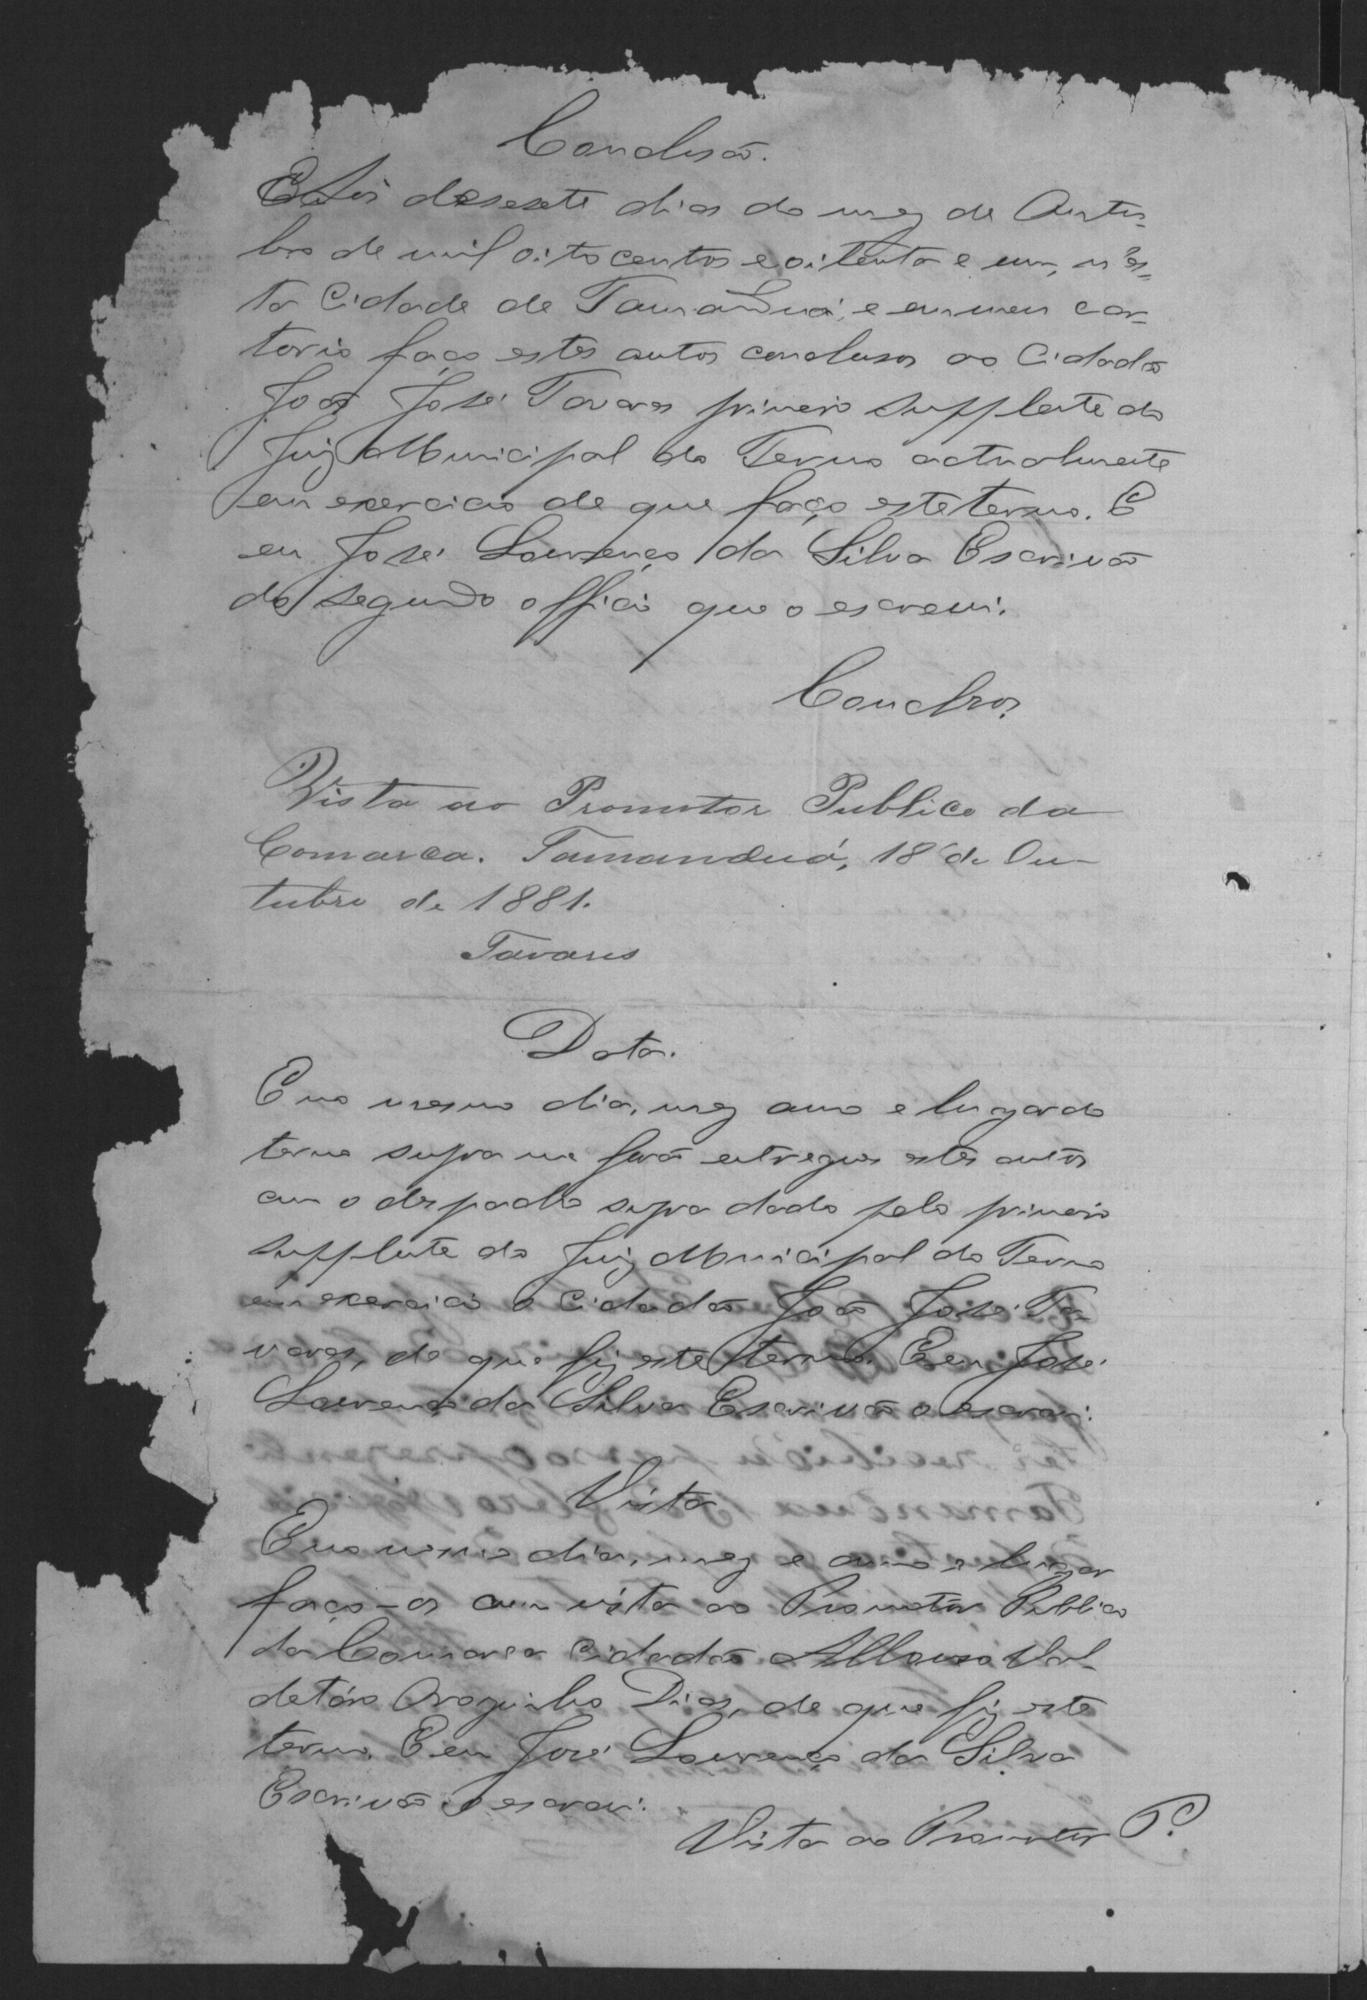 Conclusão.
Aos desesete dias do mez de Outu-
bro de mil oito centos e oitenta e um, n'es-
ta Cidade de Tamanduá, e em meu car-
torio faço estes autos conclusos ao Cidadão
João José Tavares primeiro supplente do
Juiz Municipal do Termo actualmente
em exercicio de que faço este termo. E
eu José Lourenço da Silva Escrivão
do segundo officio que o escrevi.
Conclsos
Vista ao Promotor Publico da
Comarca. Tamanduá, 18 de Ou-
tubro de 1881.
Tavares
Data.
E no mesmo dia, mez anno e lugar do
termo supra me forão entregues estes autos
com o despacho supra dado pelo primeiro
supplente do Juiz Municipal do Termo
em exercicio o Cidadão João José Ta-
vares, de que fiz este termo. E eu José
Lourenço da Silva Escrivão o escrevi.
Vista
E no mesmo dia, mez e anno e lugar
faço-os com vista ao Promotor Publico
da Comarca Cidadão Affonso
Dias, de que fiz este
termo. E eu José Lourenço da Silva
Escrivão o escrevi.
Vista ao Promotor P.